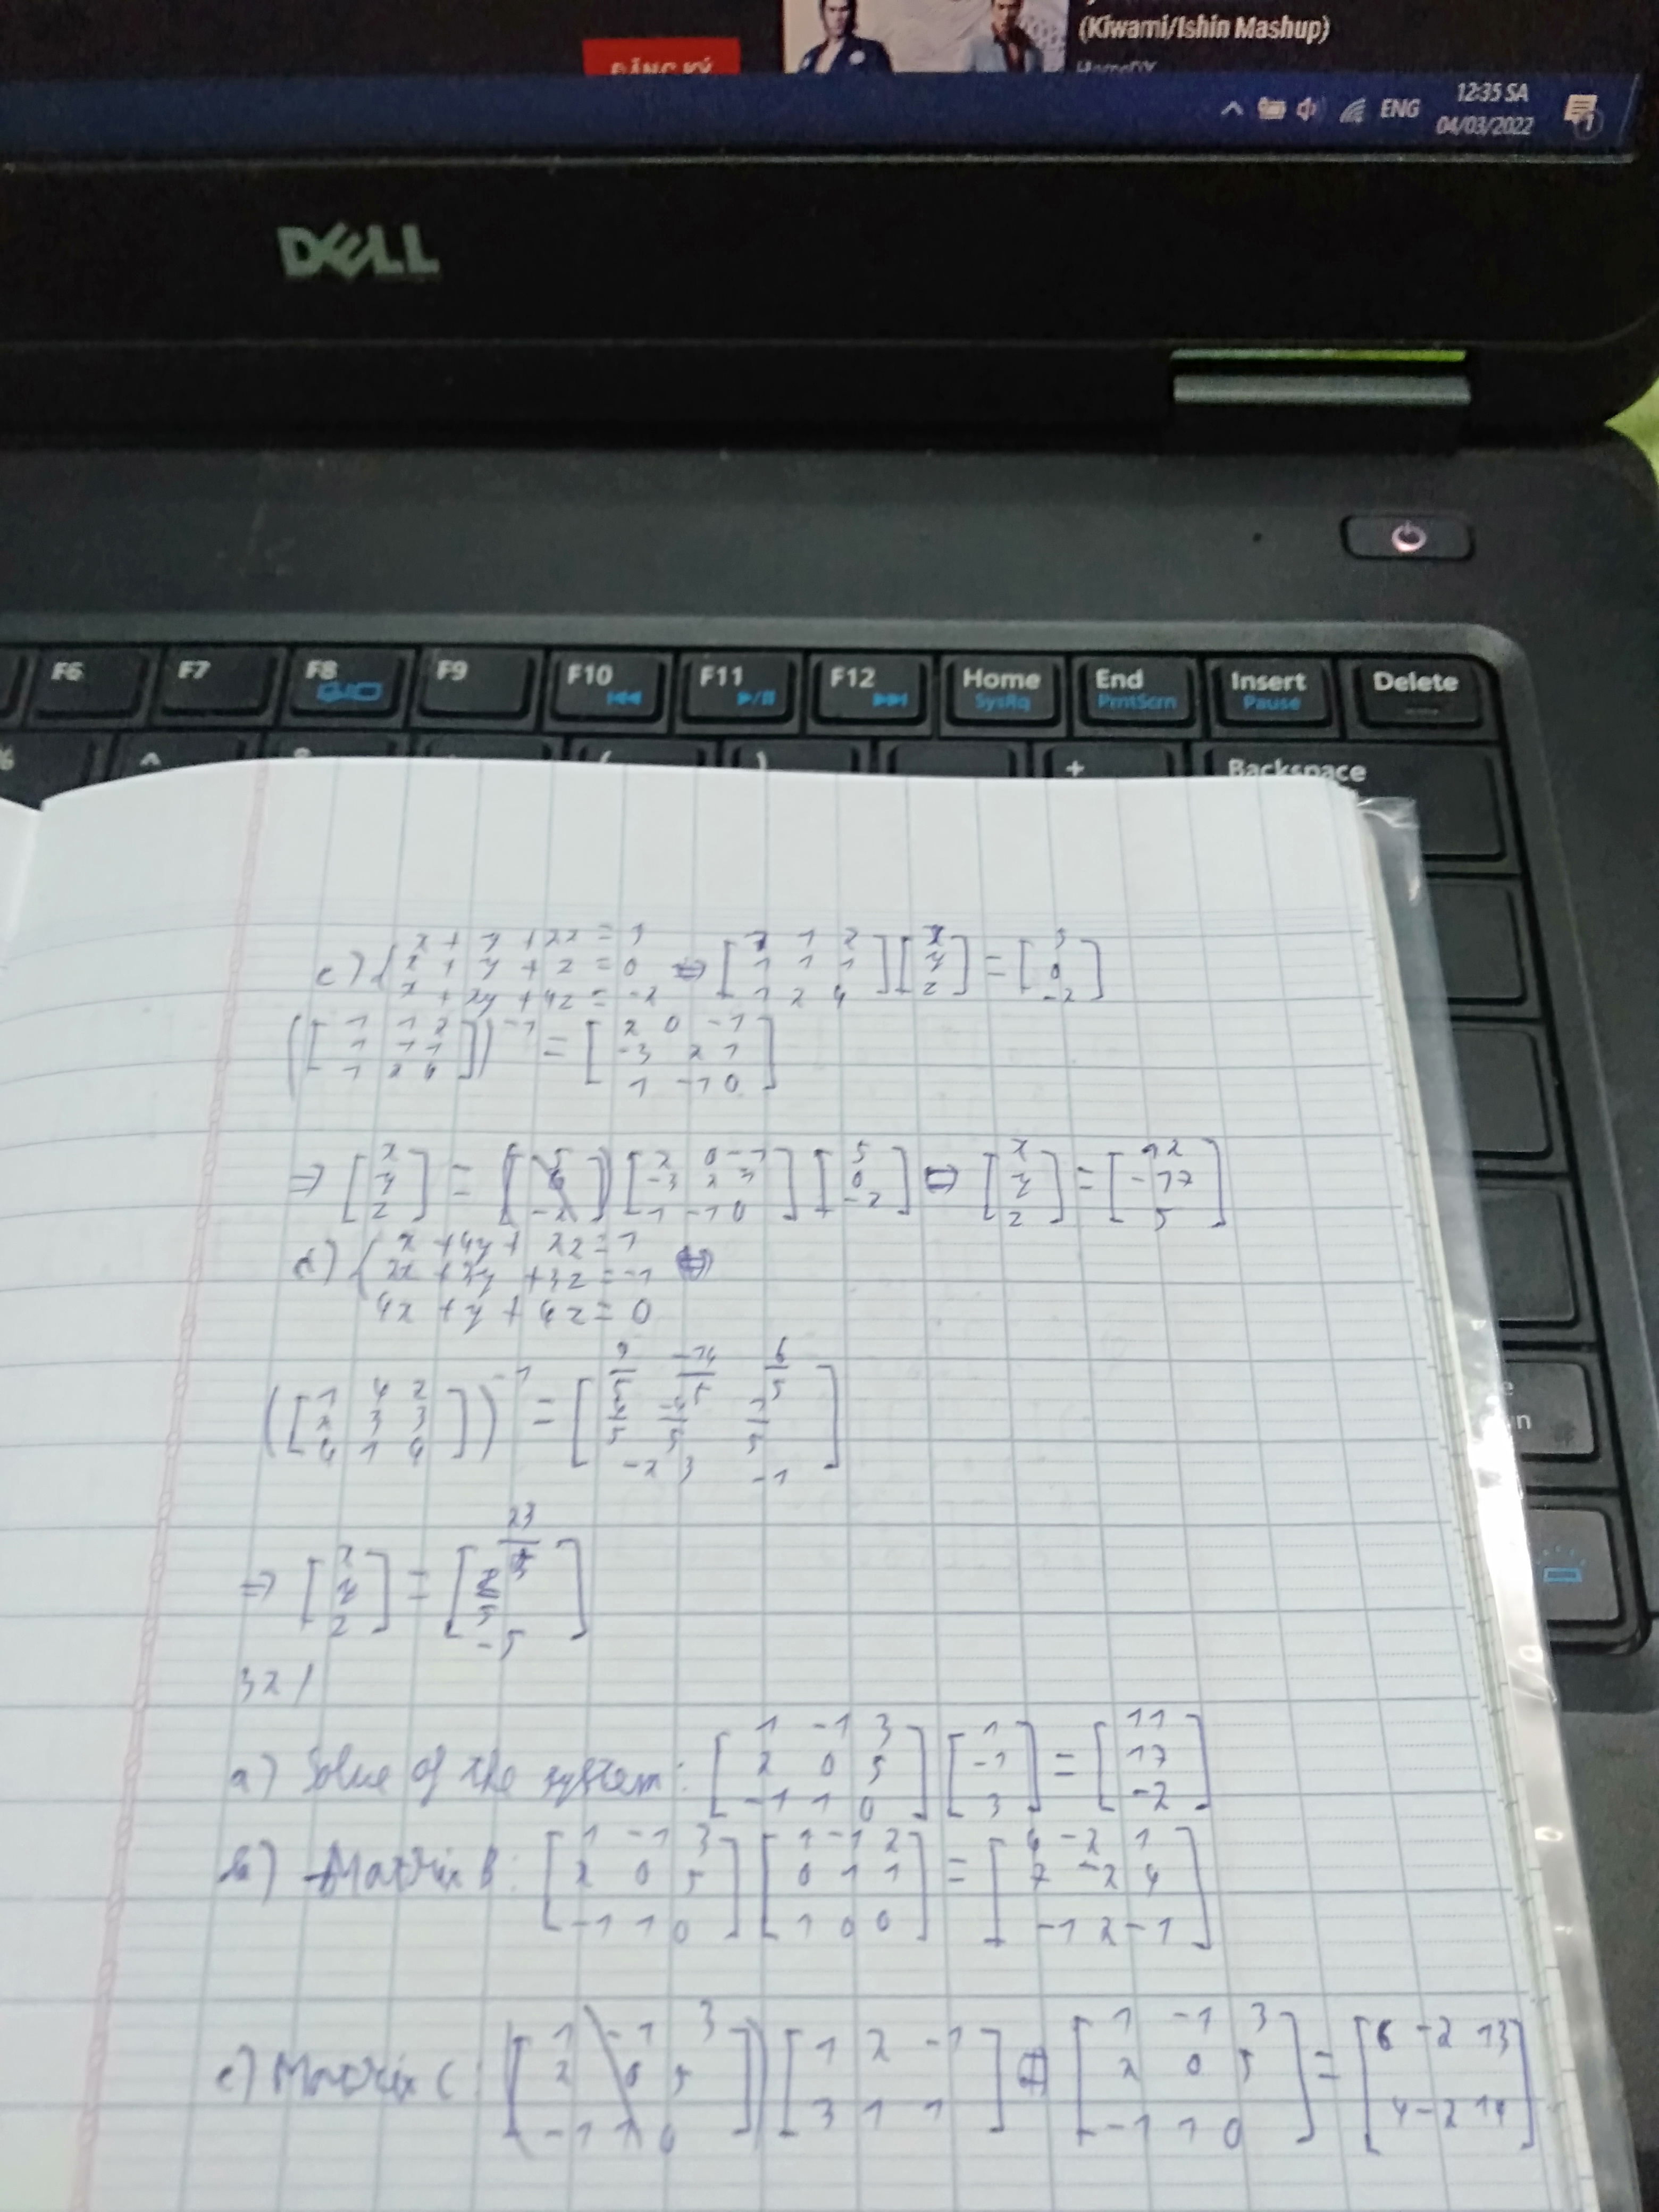 (Kiwami/Ishin Mashup)
ĐĂNG KÝ
ENG 12:35 SA
04/03/2022
1
DELL
F6 F7 F8 F9 F10 F11 F12 Home End Insert Delete
SysRq PrntScrn Pause
^ ( ) + Backspace
c) { x + y + 2z = 5
x + y + z = 0 ⇔ [1 1 2; 1 1 1; 1 2 4] [x; y; z] = [5; 0; -2]
x + 2y + 4z = -2
([1 1 2; 1 1 1; 1 2 4])^-1 = [2 0 -1; -3 2 1; 1 -1 0]
⇒ [x; y; z] = [2 0 -1; -3 2 1; 1 -1 0] [5; 0; -2] ⇔ [x; y; z] = [12; -17; 5]
d) { x + 4y + 2z = 1
2x + 3y + 3z = -1 ⇔
4x + y + 4z = 0
([1 4 2; 2 3 3; 4 1 4])^-1 = [9/5 -14/5 6/5; 4/5 -4/5 1/5; -2 3 -1]
⇒ [x; y; z] = [23/5; 8/5; -5]
32)
a) Solve of the system: [1 -1 3; 2 0 5; -1 1 0] [1; -1; 3] = [11; 17; -2]
b) Matrix B: [1 -1 3; 2 0 5; -1 1 0] [1 -1 2; 0 1 1; 1 0 0] = [4 -2 1; 7 -2 4; -1 2 -1]
c) Matrix C: [1 -1 3; 2 0 5; -1 1 0] [1 2 -1; 3 1 1] [1 -1 3; 2 0 5; -1 1 0] = [6 -2 13; 4 -2 14]